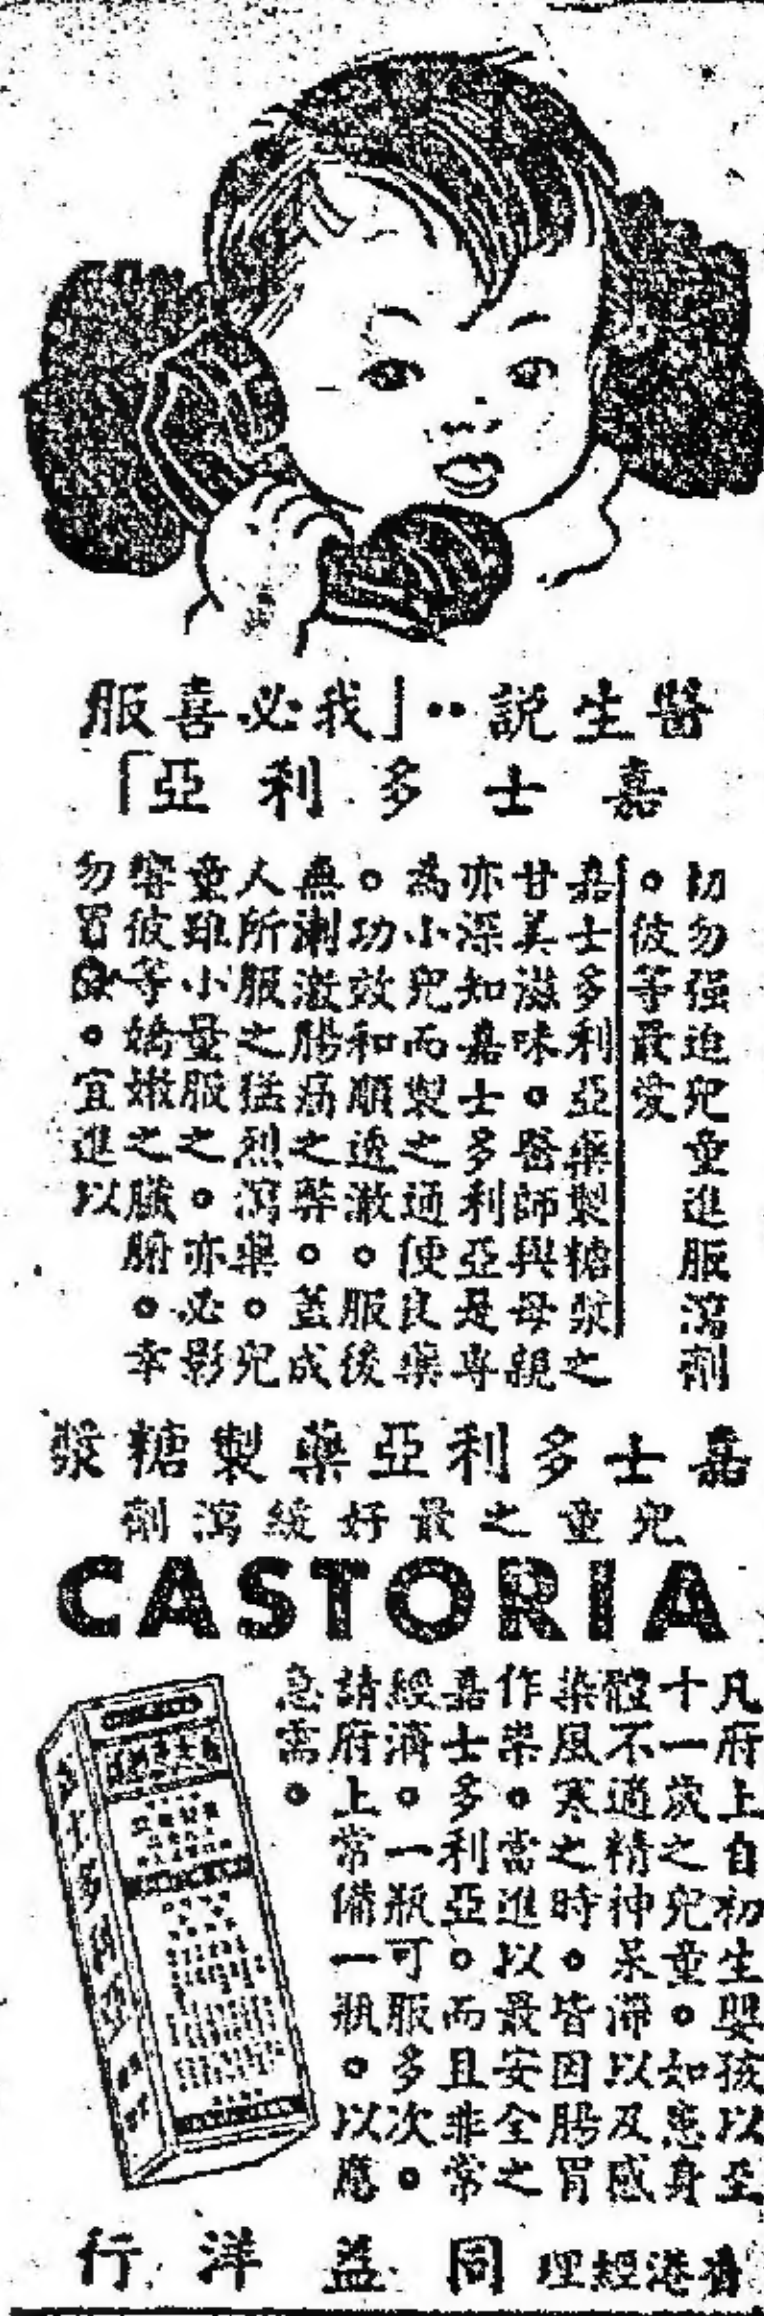 醫生説：「我必喜服
嘉士多利亞」
切勿强迫兒童進服瀉劑
。彼等最愛
嘉士多利亞藥製糖漿之
甘美滋味。醫師與母親
亦深知嘉士多利亞是專
為小兒而製之通便良藥
。功效和順透澈。服後
無瀏激腸痛之弊。蓋成
人所服之猛烈瀉藥。兒
童雖小量服之。亦必影
響彼等嬌嫩之臟腑。幸
勿冒險。宜進以
嘉士多利亞藥製糖漿
兒童之最好緩瀉劑
CASTORIA
凡府上自初生嬰孩以至
十一歲之兒童。如患身
體不適精神呆滯以及感
染風寒之時。皆因腸胃
作祟。當進以最安全之
嘉士多利亞。而且非常
經濟。一瓶可服多次。
請府上常備一瓶。以應
急需。
嘉士多利亞
香港經理 同益洋行